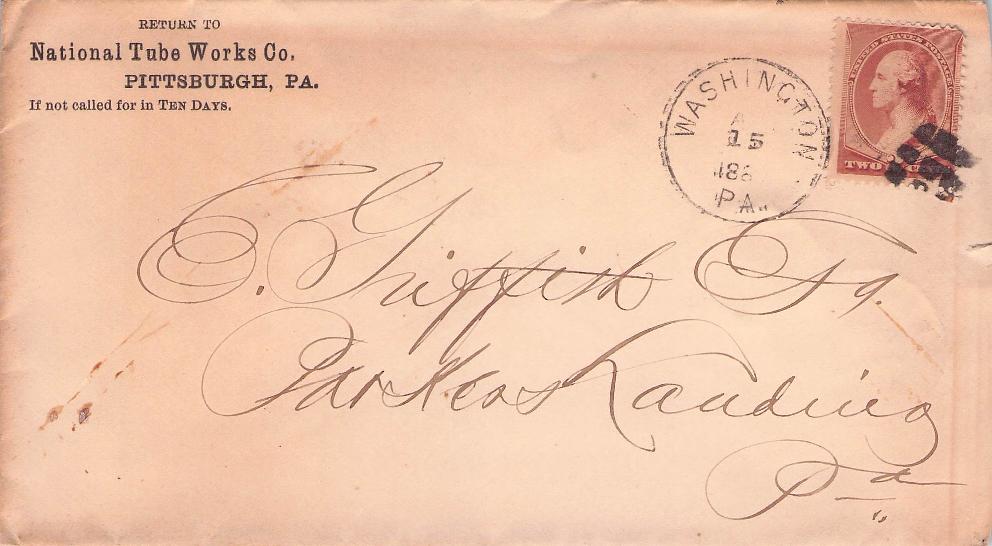 RETURN TO
National Tube Works Co.
PITTSBURGH, PA.
If not called for in TEN DAYS.
WASHINGTON
15
188
PA.
UNITED STATES POSTAGE
TWO
E. Griffith
Parkers Landing
Pa